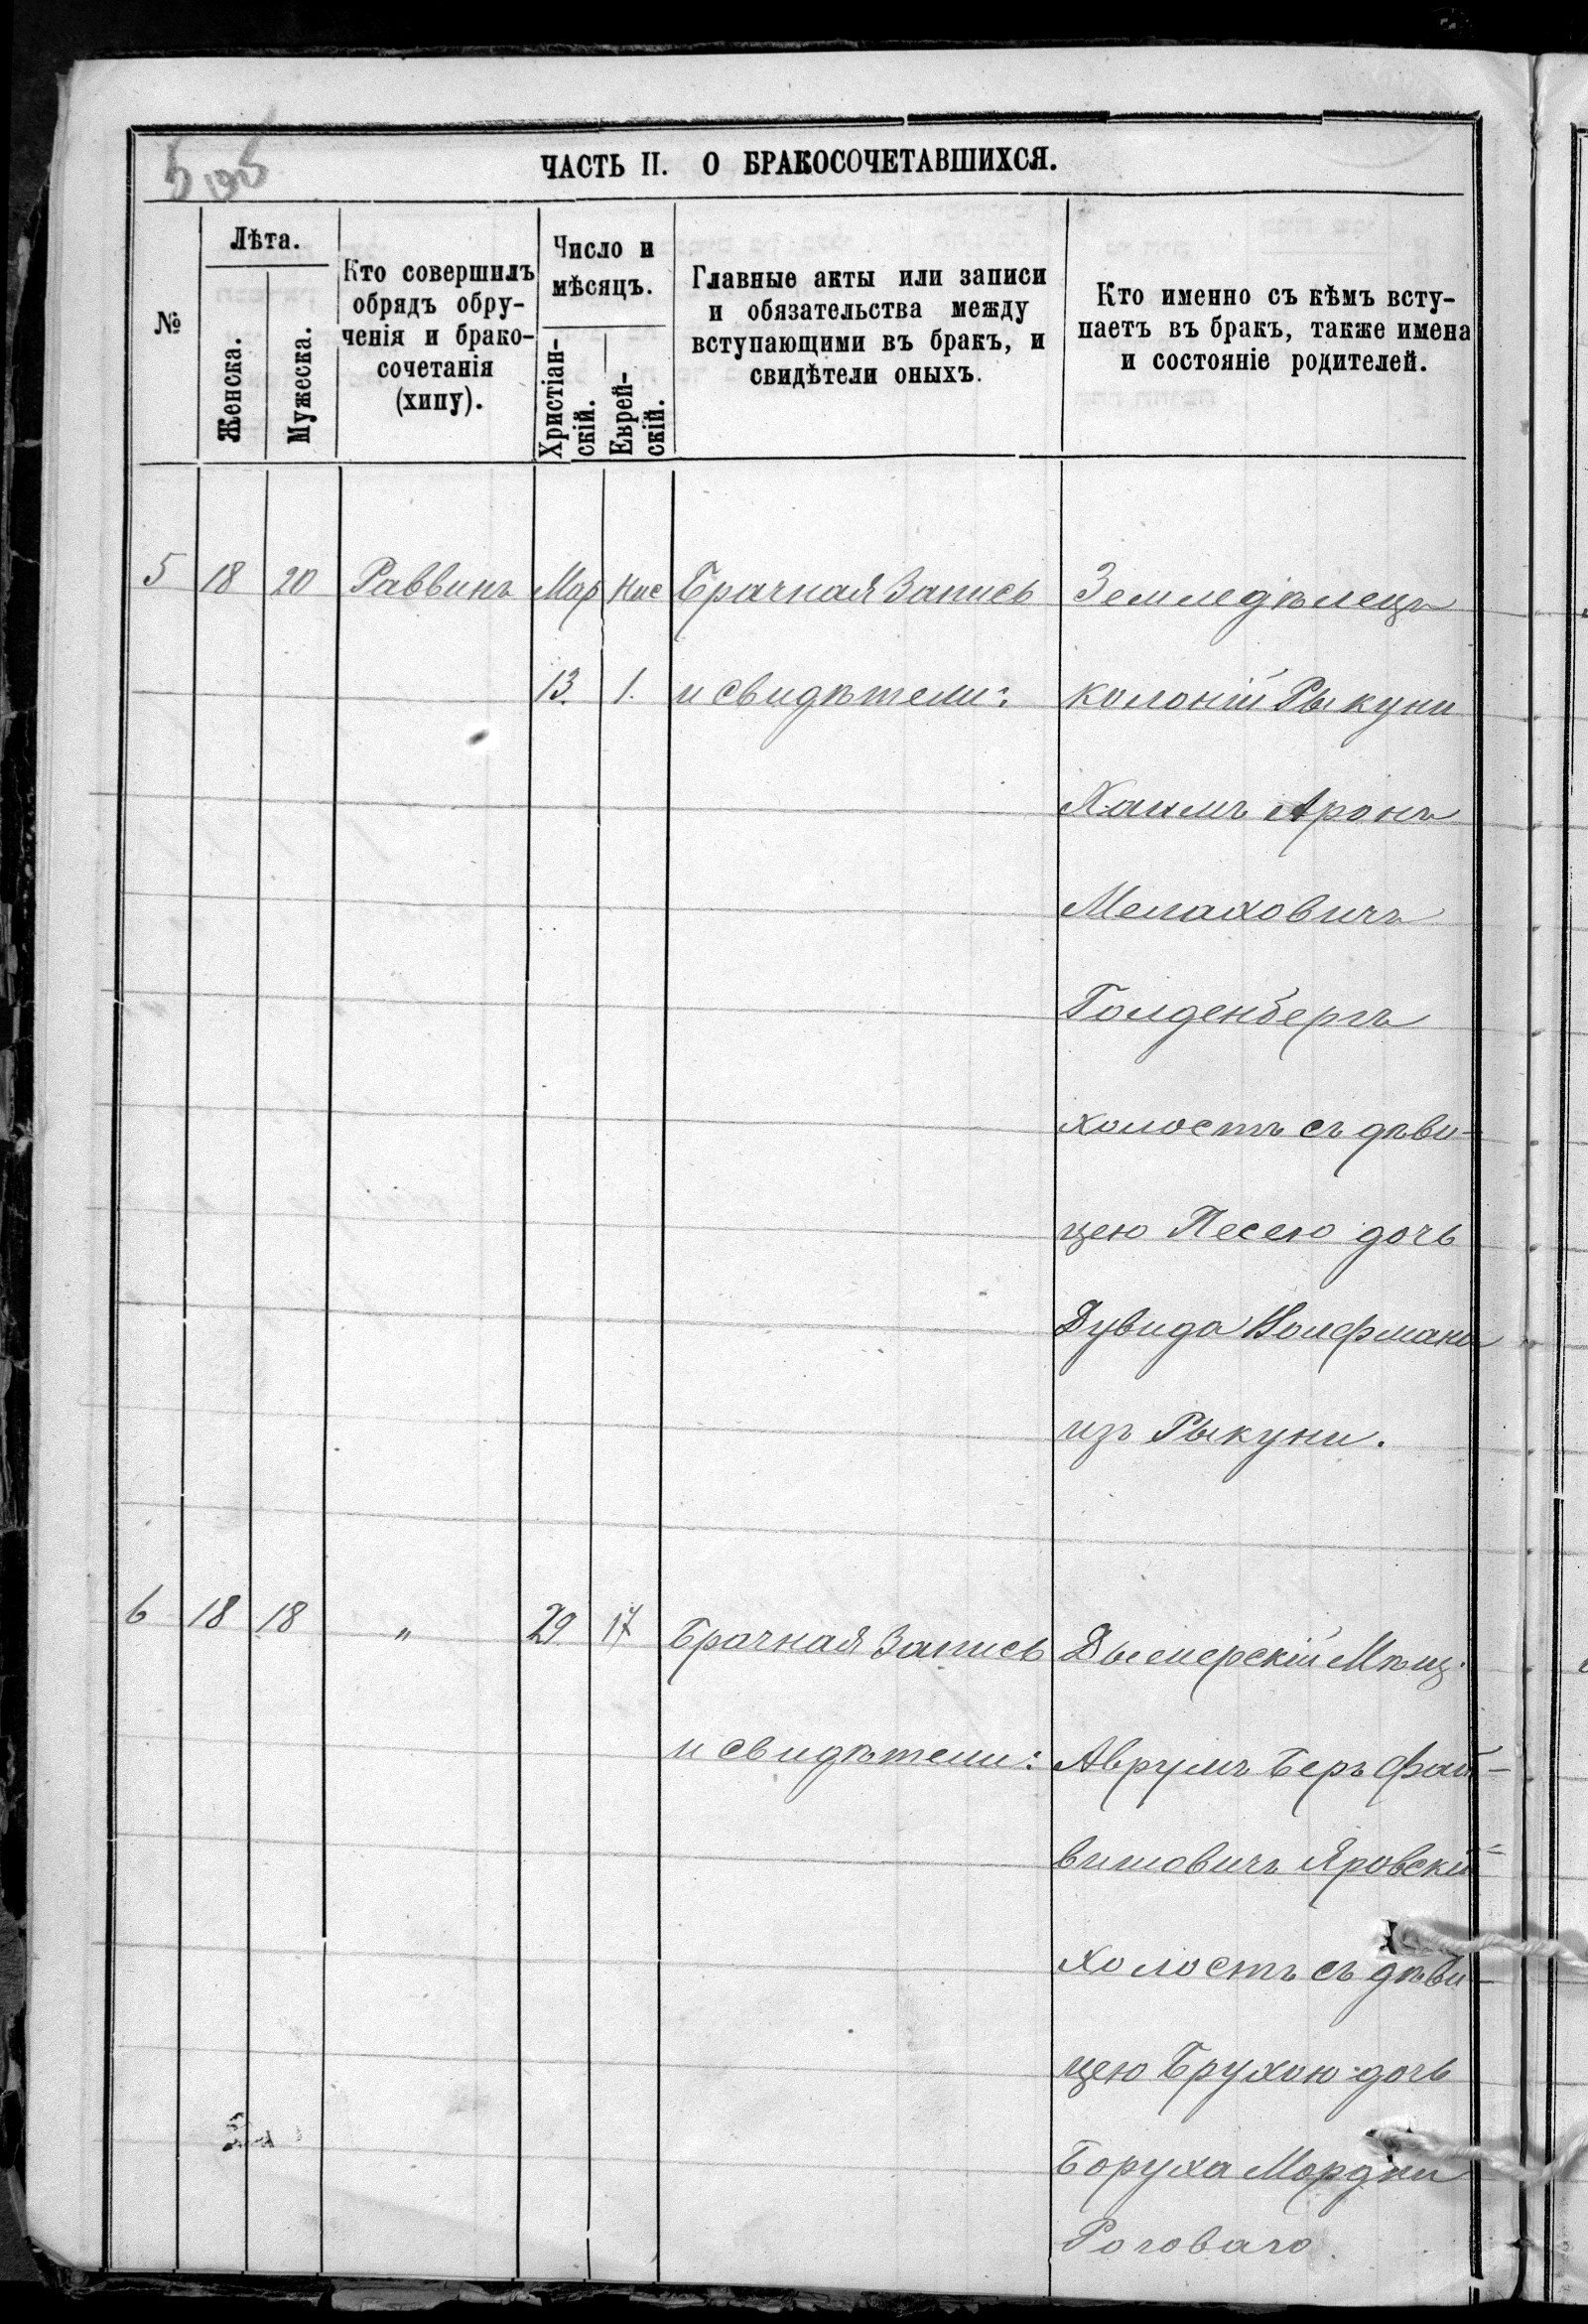 5 195
ЧАСТЬ II. О БРАКОСОЧЕТАВШИХСЯ.
№
Лѣта.
Женска.
Мужеска.
Кто совершилъ
обрядъ обру-
ченія и брако-
сочетанія
(хипу).
Число и
мѣсяцъ.
Христіан-
скій.
Еврей-
скій.
Главные акты или записи
и обязательства между
вступающими въ бракъ, и
свидѣтели оныхъ.
Кто именно съ кѣмъ всту-
паетъ въ бракъ, также имена
и состояніе родителей.
5 18 20 Раввинъ Мар Нис Брачная Запись Земледѣлецъ
13. 1. и свидѣтели: колоній Рыкуни
Хаимъ Аронъ
Мелаховичъ
Голденбергъ
холостъ съ дѣви-
цею Песею дочь
Дувида Волфмана
изъ Рыкуни.
6 18 18 " 29. 17 Брачная Запись Дымерскій Мѣщ.
и свидѣтели: Аврумъ Беръ Фай-
вишовичъ Яровскій
Холостъ съ дѣви-
цею Брухою дочь
Боруха Мордки
Роговаго.